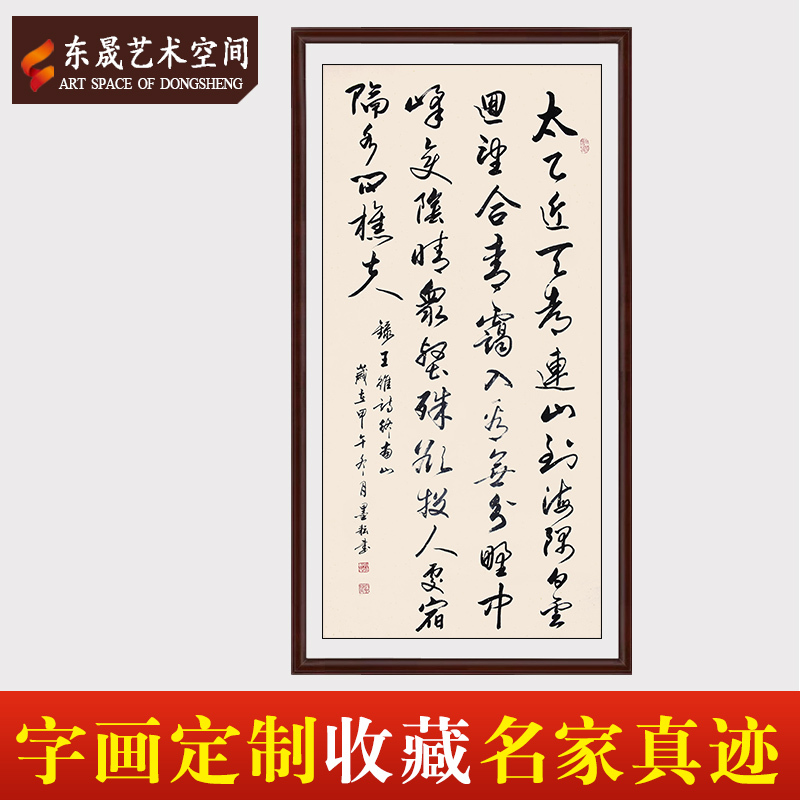 东晟艺术空间
ART SPACE OF DONGSHENG
太乙近天都連山到海隅白雲
迴望合青靄入看無分野中
峰變陰晴衆壑殊欲投人處宿
隔水問樵夫
録王維詩終南山
歲在甲午冬月墨書
字画定制收藏名家真迹